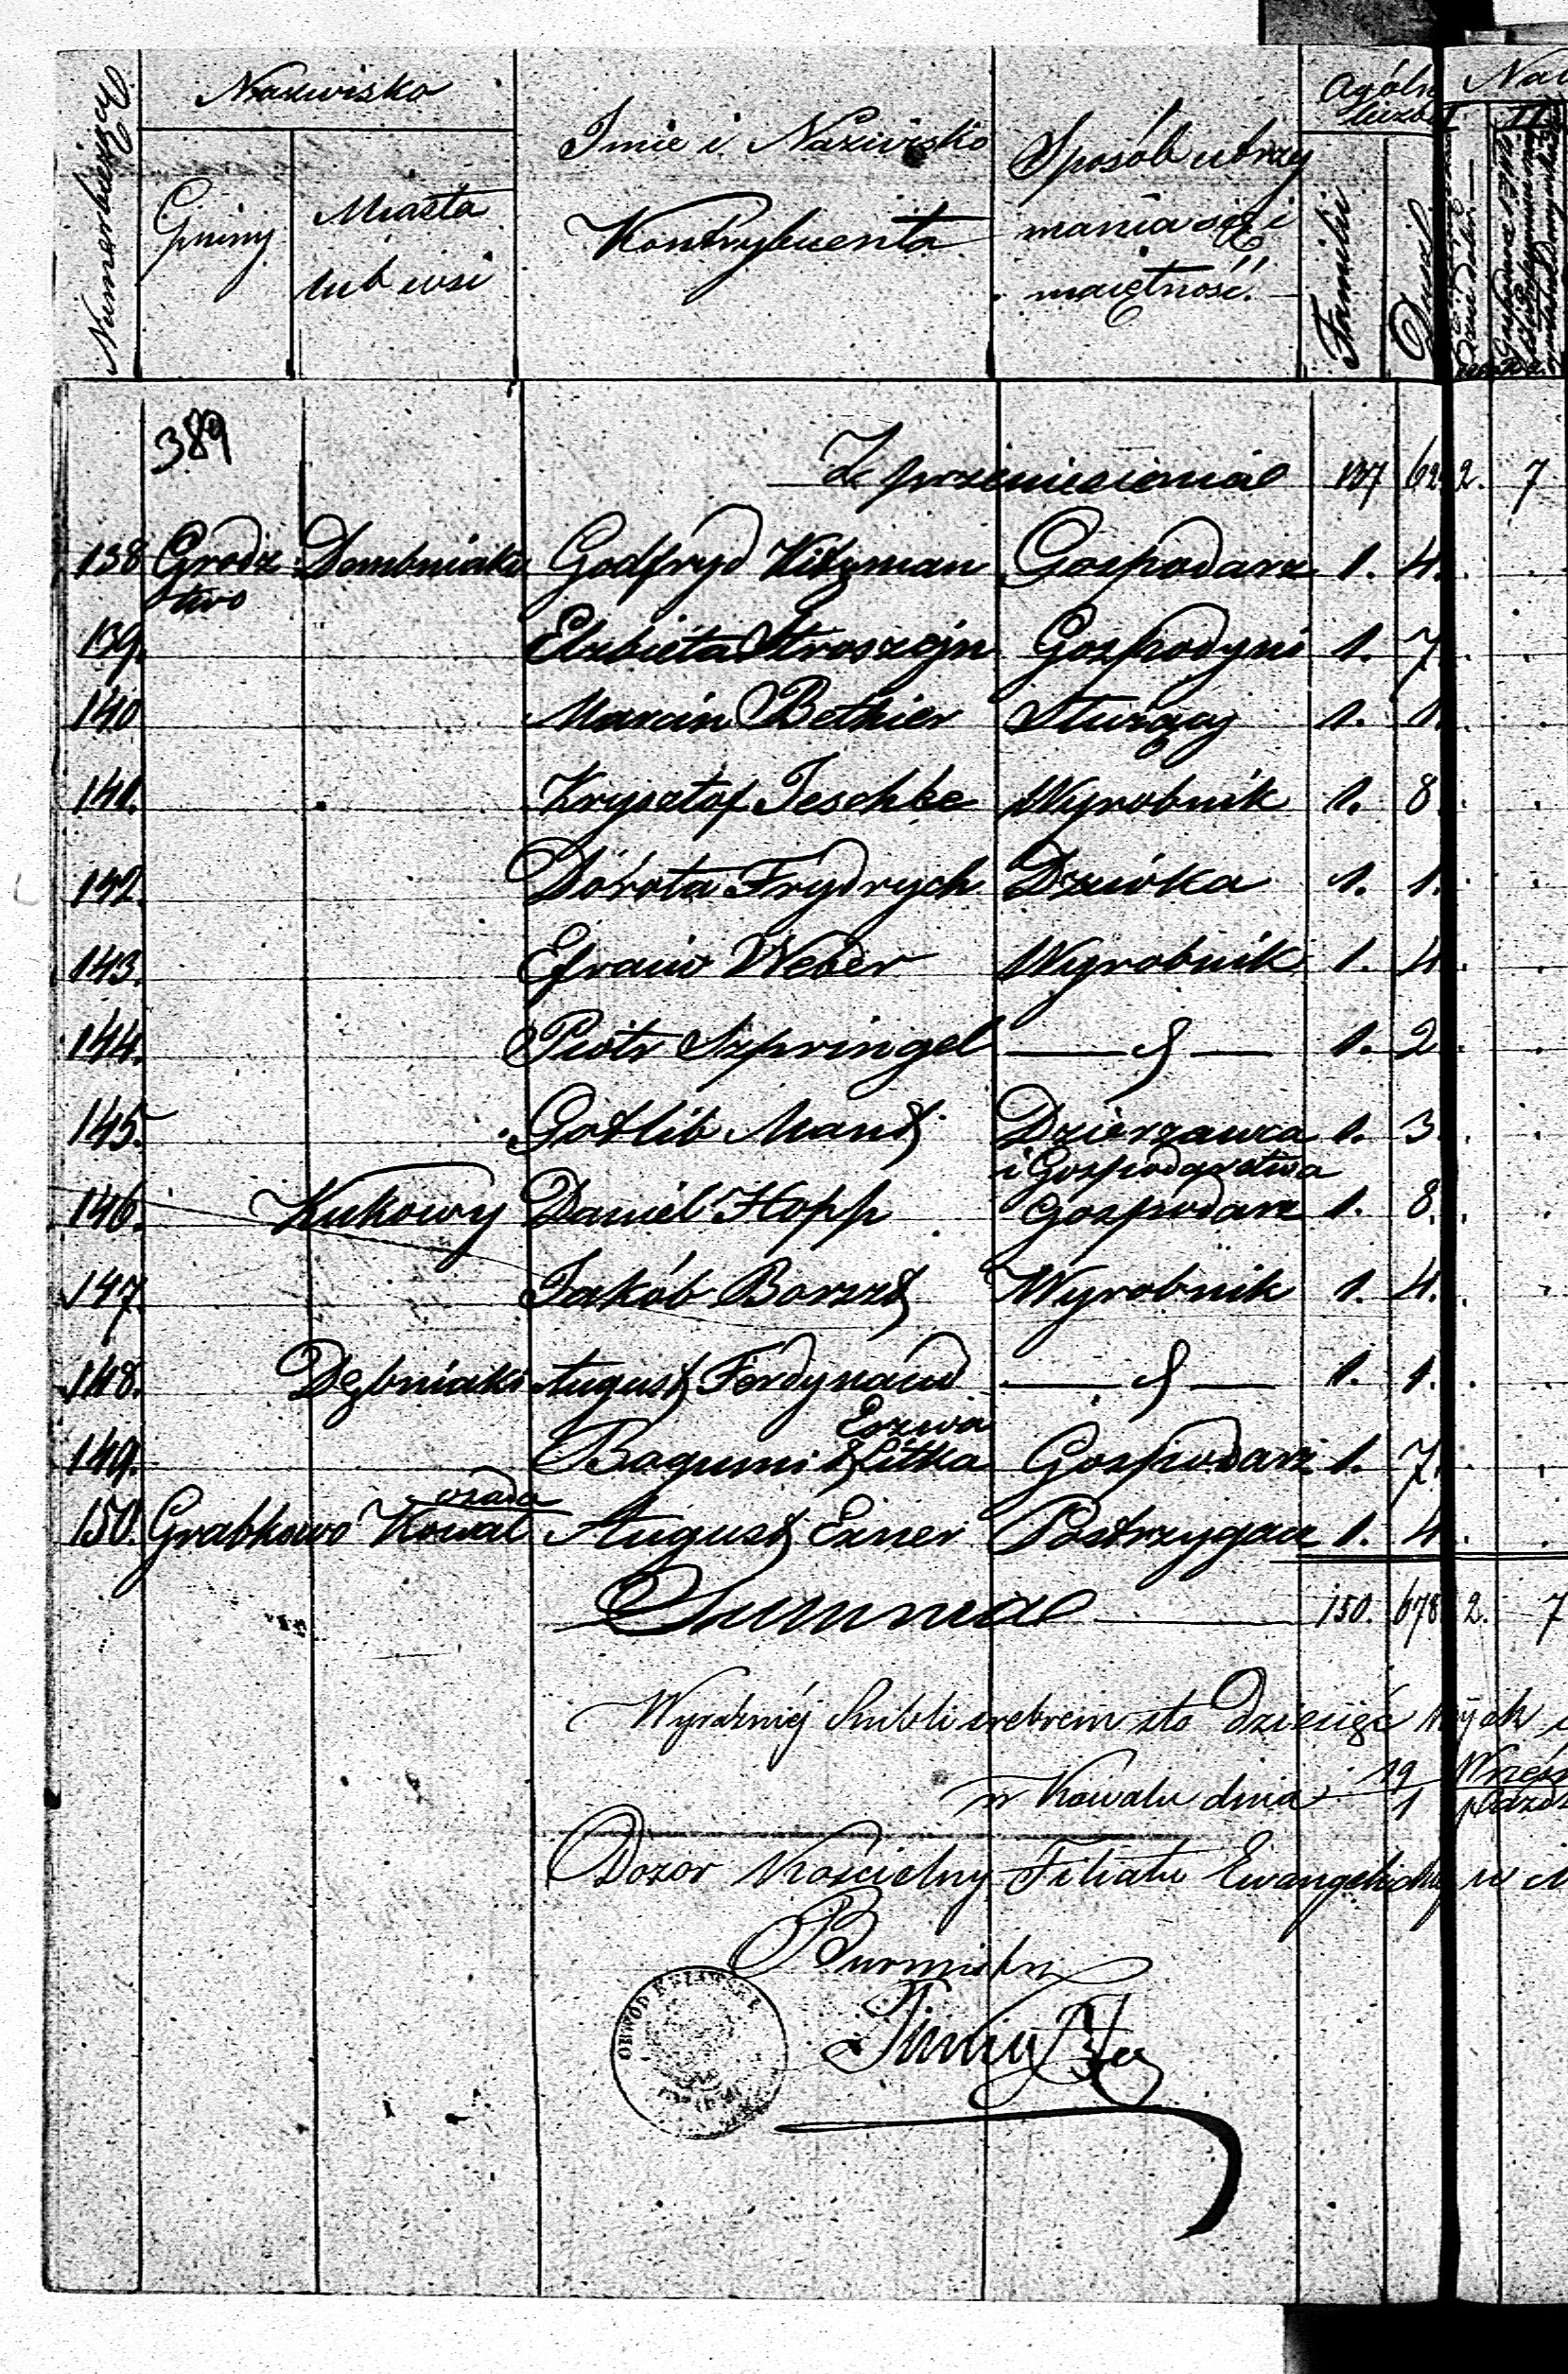 Numer bieżący
Nazwisko
Gminy
Miasta
lub wsi
Imie i Nazwisko
Kontrybuenta
Sposób utrzy
mania się i
maiętność.
Ogóln
liczba
Familii
Dusz
I
II
389
Z przeniesienia 137 62 2. 7
138 Grodz Dombniaki Godfryd Kitzman Gospodarz 1. 4.
two
139. Elzbieta Stroszejn Gospodyni 1. 7.
140 Marcin Bethier Służący 1. 1.
141. Krysztof Jeschke Wyrobnik 1. 8.
142. Dorota Frydrych Dziewka 1. 1.
143. Efraim Weber Wyrobnik 1. 4.
144. Piotr Szpringel 1. 2.
145. Gotlib Mant Dzierzawca 1. 3.
i Gospodarstwa
146. Kukowy Daniel Hopp Gospodarz 1. 8.
147. Jakób Borszt Wyrobnik 1. 4.
148. Dębniaki August Ferdynand 1. 1.
149. Bogumi Litka Gospodarz 1. 7.
osada
150. Grabkowo Kowal August Exner Postrzygacz 1. 4.
Summa 150. 678 2. 7
Wyraźniéj Rubli srebrem sto dziesięć
w Kowalu dnia 19
1
Dozor Kościelny Filiału Ewangelickiego w
Burmistrz
OBWÓD